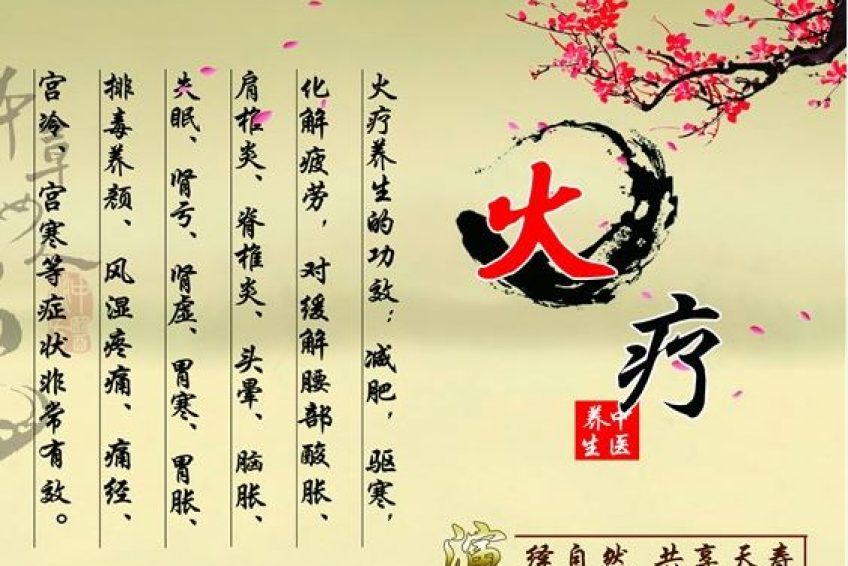 火疗
中医
养生
火疗养生的功效：减肥，驱寒，
化解疲劳，对缓解腰部酸胀、
肩椎炎、脊椎炎、头晕、脑胀、
失眠、肾亏、肾虚、胃寒、胃胀、
排毒养颜、风湿疼痛、痛经、
宫冷、宫寒等症状非常有效。
演绎自然 共享天寿